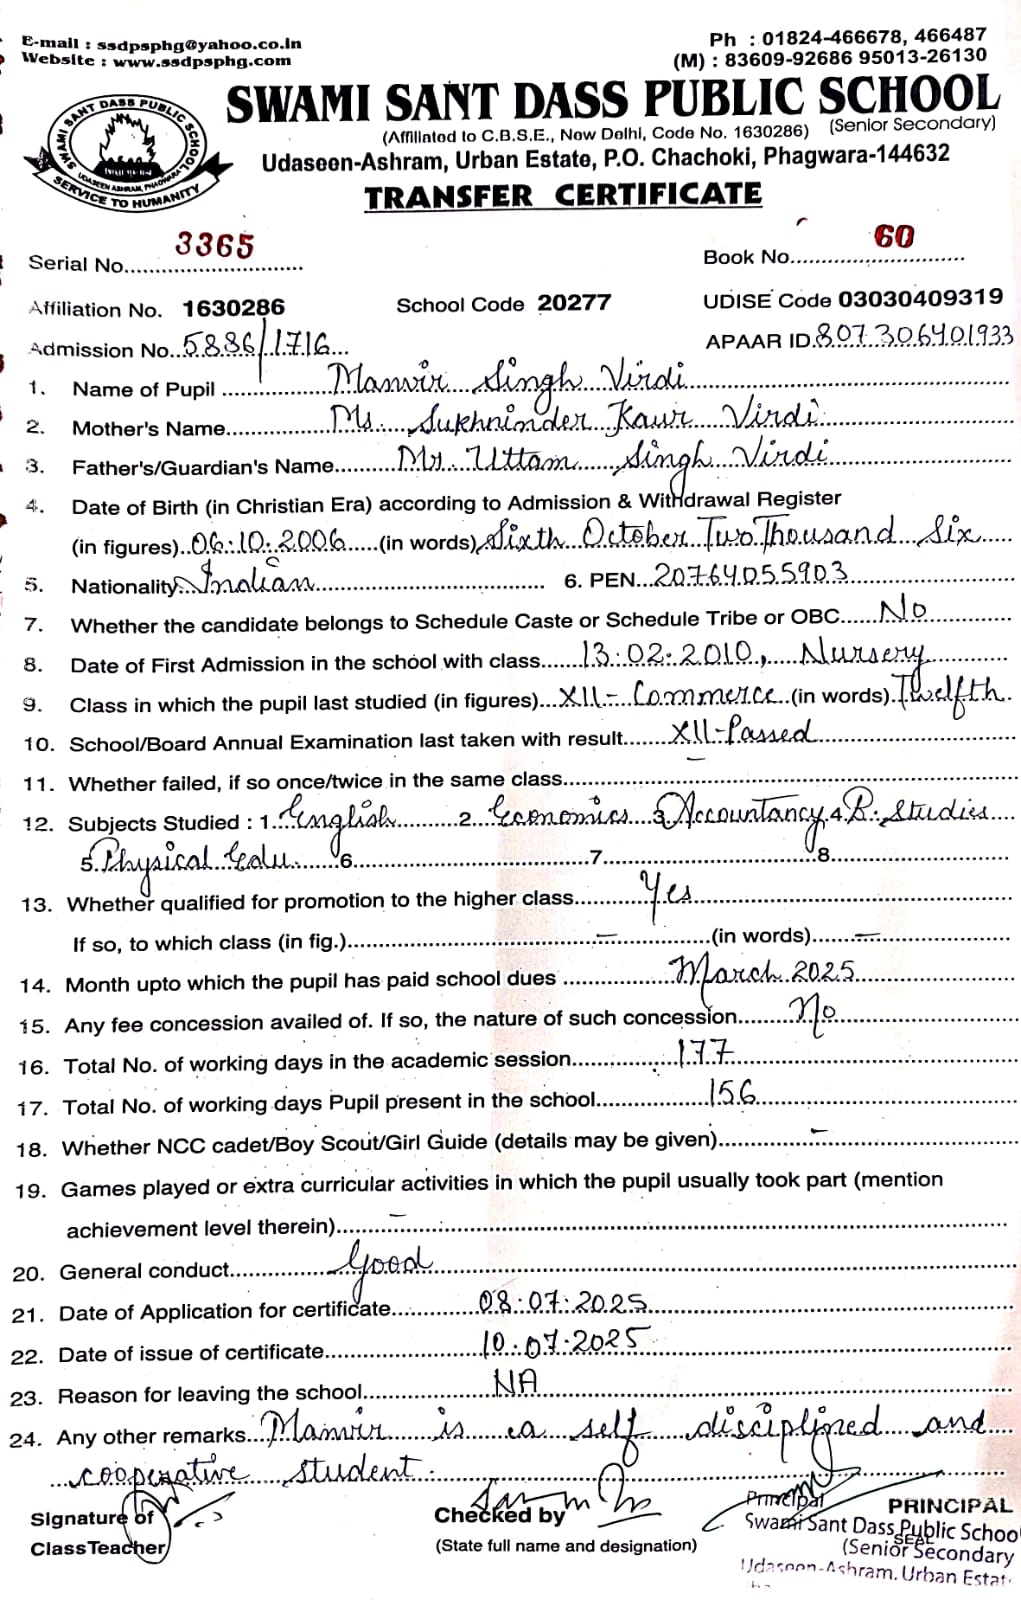 E-mail : ssdpsphg@yahoo.co.in
Website : www.ssdpsphg.com
Ph : 01824-466678, 466487
(M) : 83609-92686 95013-26130
SWAMI SANT DASS PUBLIC SCHOOL
(Affiliated to C.B.S.E., New Delhi, Code No. 1630286) (Senior Secondary)
Udaseen-Ashram, Urban Estate, P.O. Chachoki, Phagwara-144632
SWAMI SANT DASS PUBLIC SCHOOL
UDASEEN ASHRAM, PHAGWARA
SERVICE TO HUMANITY
TRANSFER CERTIFICATE
Serial No. 3365 Book No. 60
Affiliation No. 1630286 School Code 20277 UDISE Code 03030409319
Admission No. 5886/1716 APAAR ID 807306401933
1. Name of Pupil Manvir Singh Virdi
2. Mother's Name Ms. Sukhninder Kaur Virdi
3. Father's/Guardian's Name Mr. Uttam Singh Virdi
4. Date of Birth (in Christian Era) according to Admission & Withdrawal Register
(in figures) 06.10.2006 (in words) Sixth October Two Thousand Six
5. Nationality Indian 6. PEN 20764055903
7. Whether the candidate belongs to Schedule Caste or Schedule Tribe or OBC No
8. Date of First Admission in the school with class 13.02.2010, Nursery
9. Class in which the pupil last studied (in figures) XII - Commerce (in words) Twelfth
10. School/Board Annual Examination last taken with result XII-Passed
11. Whether failed, if so once/twice in the same class –
12. Subjects Studied : 1. English 2. Economics 3. Accountancy 4. B. Studies
5. Physical Edu. 6 7 8
13. Whether qualified for promotion to the higher class Yes
If so, to which class (in fig.) – (in words) –
14. Month upto which the pupil has paid school dues March 2025
15. Any fee concession availed of. If so, the nature of such concession No
16. Total No. of working days in the academic session 177
17. Total No. of working days Pupil present in the school 156
18. Whether NCC cadet/Boy Scout/Girl Guide (details may be given) –
19. Games played or extra curricular activities in which the pupil usually took part (mention
achievement level therein) –
20. General conduct Good
21. Date of Application for certificate 08.07.2025
22. Date of issue of certificate 10.07.2025
23. Reason for leaving the school NA
24. Any other remarks Manvir is a self disciplined and
cooperative student.
Signature of
Class Teacher
Checked by
(State full name and designation)
PRINCIPAL
SEAL
Principal
Swami Sant Dass Public Schoo
(Senior Secondary
Udaseen-Ashram, Urban Estat